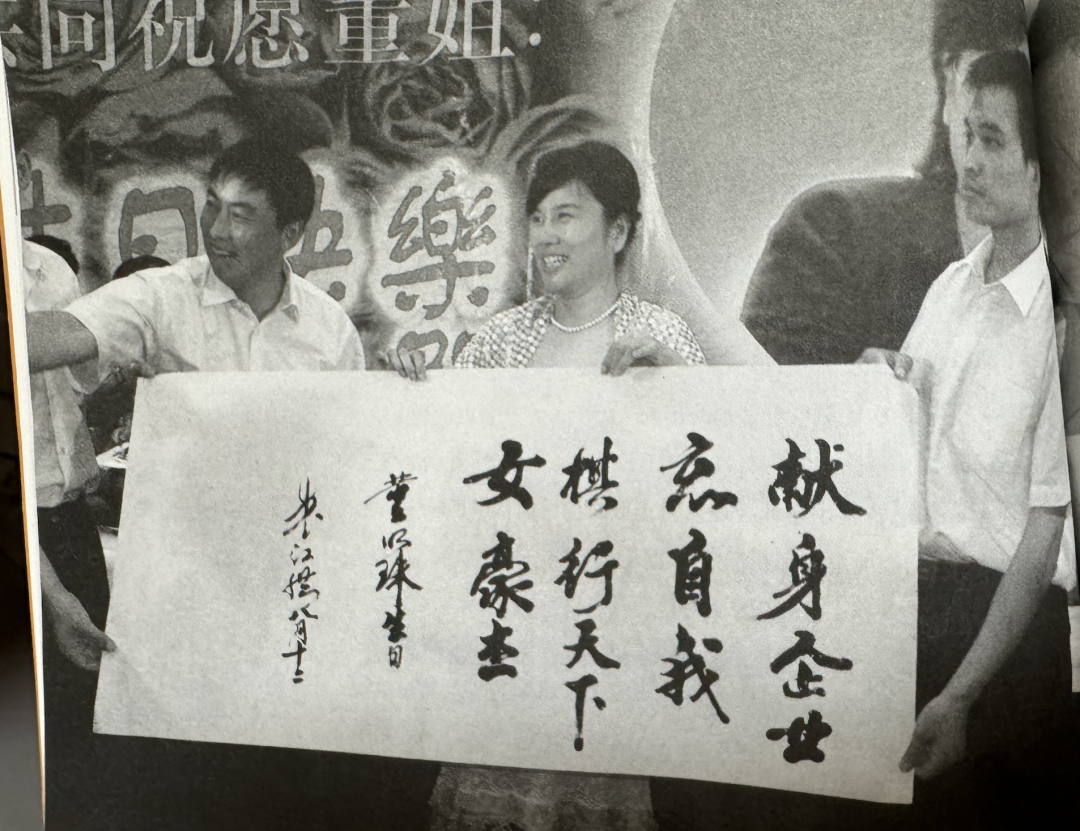 共同祝愿董姐:
生日快樂
献身企业
忘自我
棋行天下
女豪杰
董明珠生日
朱江洪八月十二